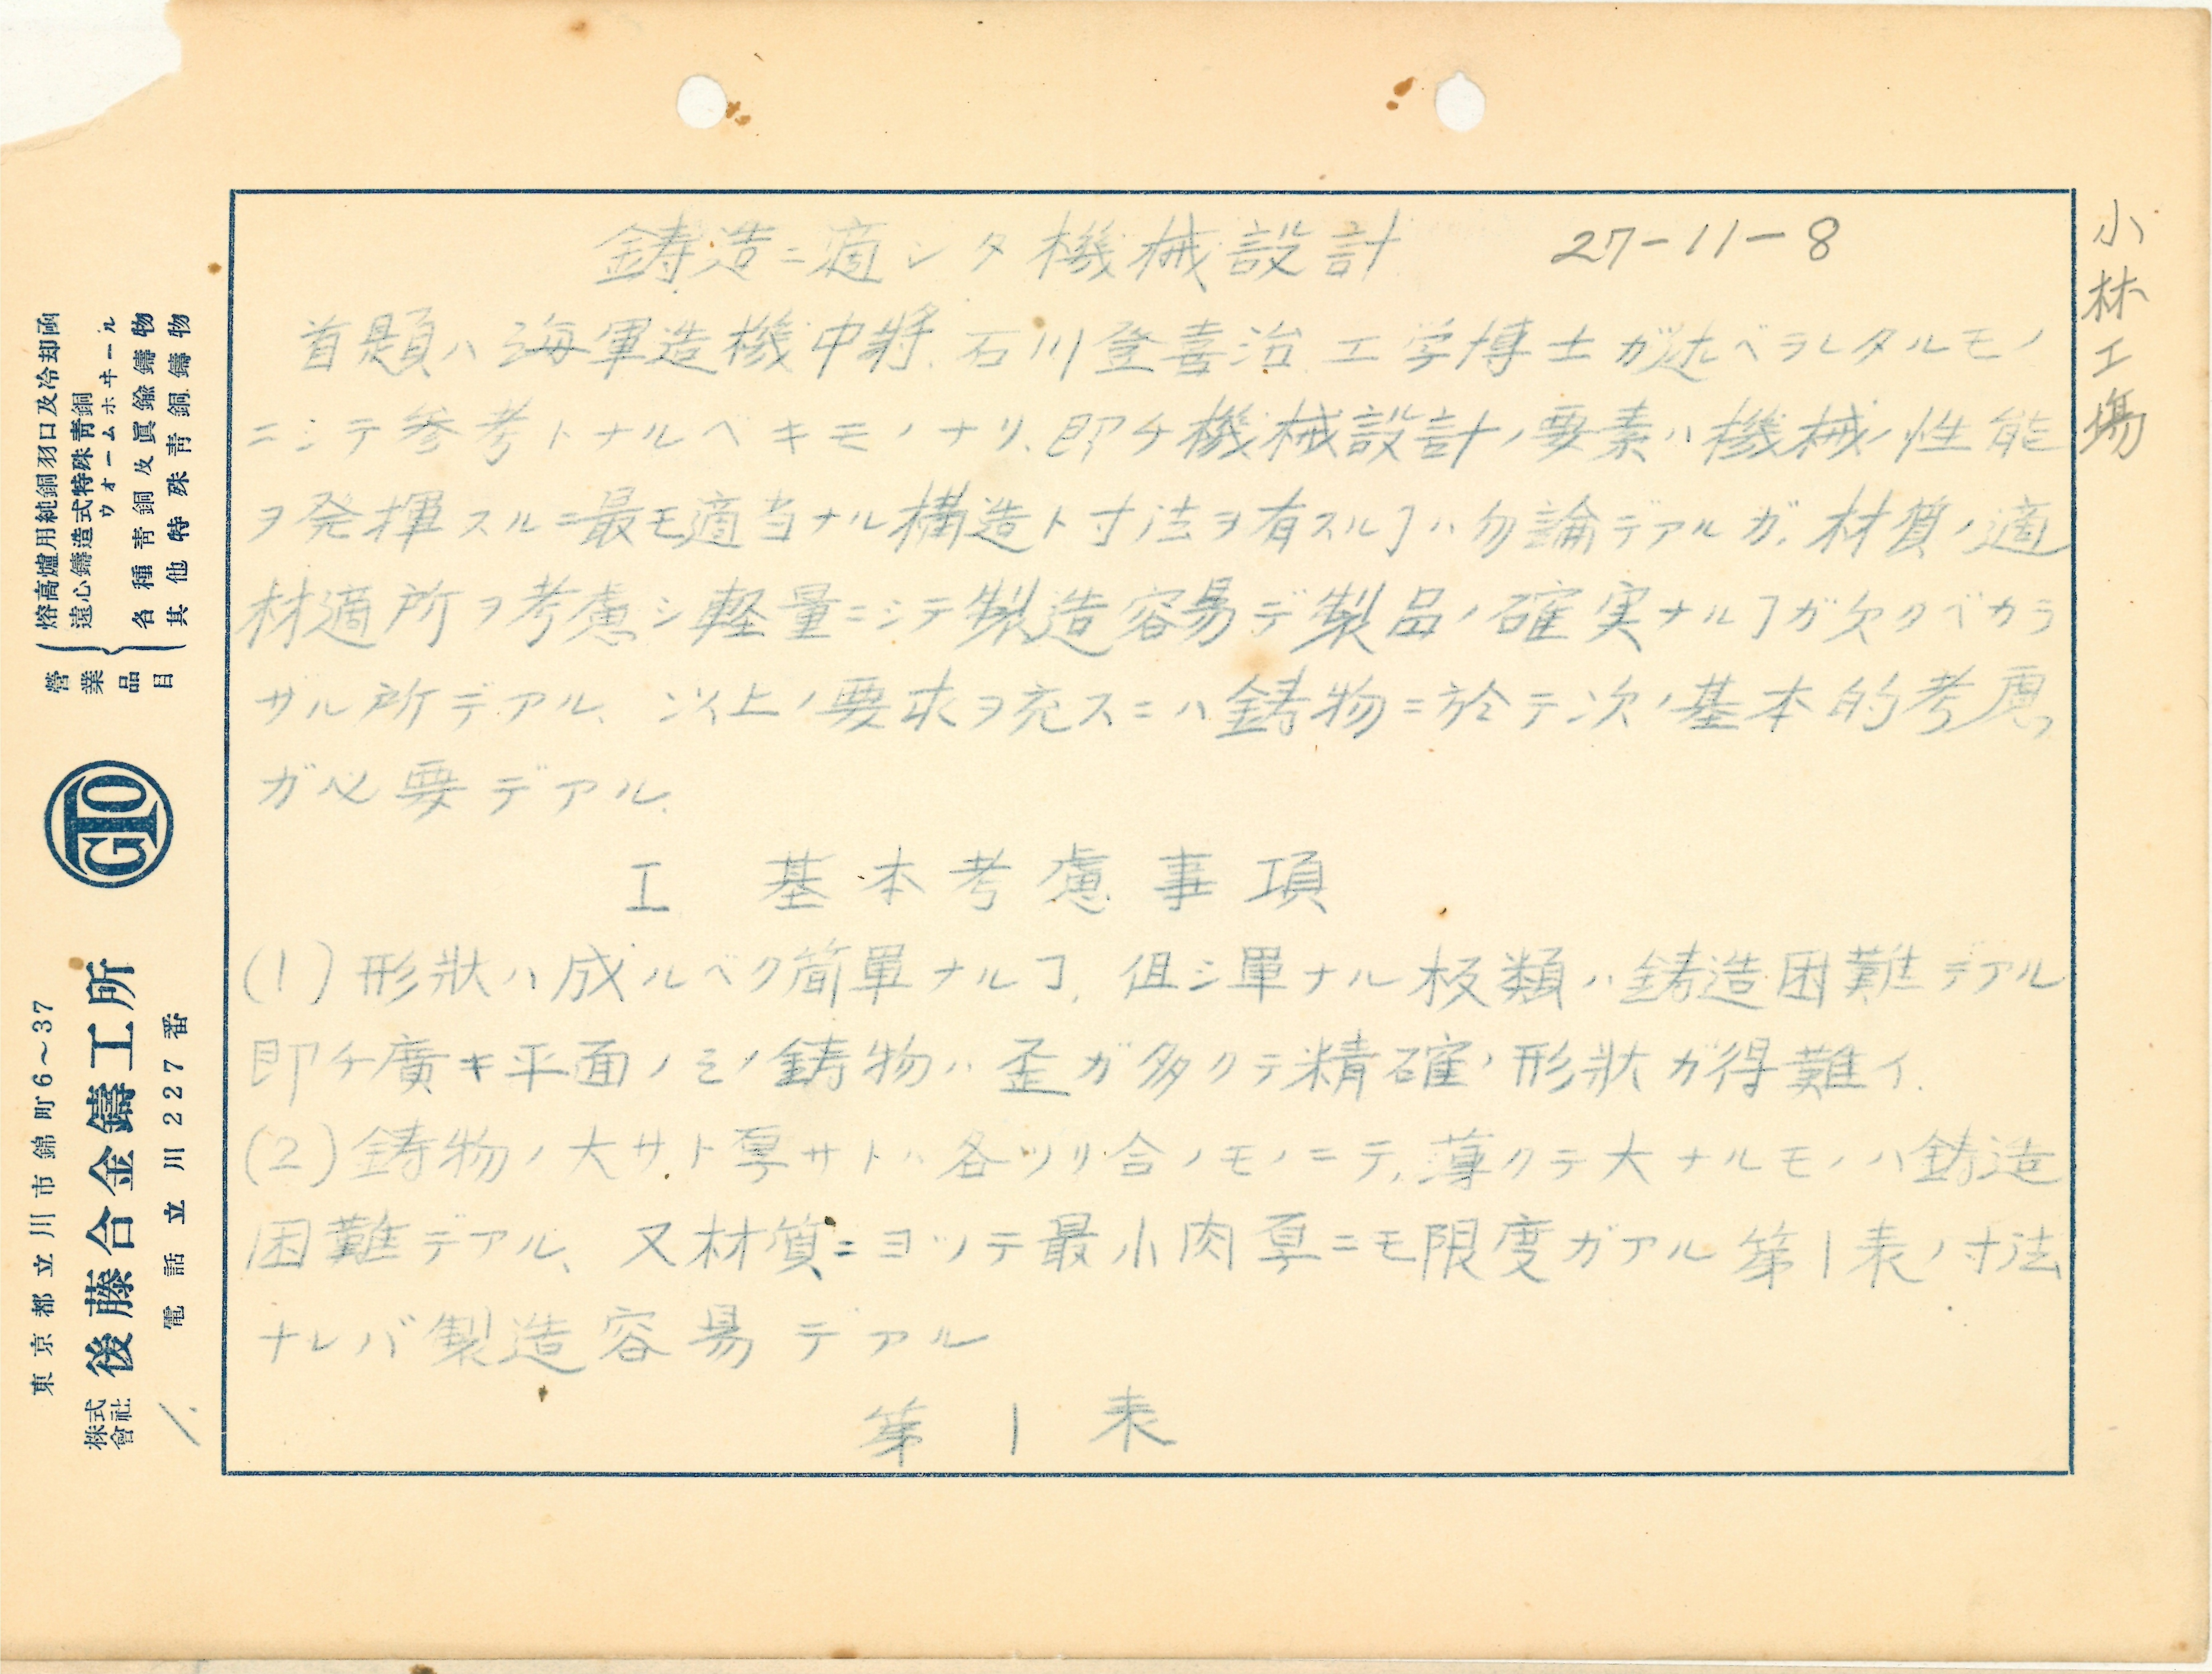 鋳造ニ適シタ機械設計 27-11-8
首題ハ海軍造機中将.石川登喜治 工学博士ガ述ベラレタルモノ
ニシテ参考トナルベキモノナリ、即チ機械設計ノ要素ハ機械ノ性能
ヲ発揮スルニ最モ適当ナル構造ト寸法ヲ有スルヿハ勿論デアルガ、材質ノ適
材適所ヲ考慮シ軽量ニシテ製造容易デ製品ノ確実ナルヿガ欠クベカラ
サル所デアル、以上ノ要求ヲ充スニハ鋳物ニ於テ次ノ基本的考慮
ガ必要デアル.
I 基本考慮事項
(1) 形狀ハ成ルベク簡單ナルヿ. 但シ單ナル板類ハ鋳造困難デアル
即チ廣キ平面ノミノ鋳物ハ歪ガ多クテ精確ノ形狀ガ得難イ.
(2) 鋳物ノ大サト厚サトハ各ツリ合ノモノニテ、薄クテ大ナルモノハ鋳造
困難デアル、又材質ニヨッテ最小肉厚ニモ限度ガアル 第1表ノ寸法
ナレバ製造容易デアル
第 1 表
小林工場
營業品目
熔高爐用純銅羽口及冷却函
遠心鑄造式特殊青銅ウオームホヰール
各種青銅及眞鍮鑄物
其他特殊青銅鑄物
GTO
東京都立川市錦町6~37
株式會社 後藤合金鑄工所
電話立川227番
1.